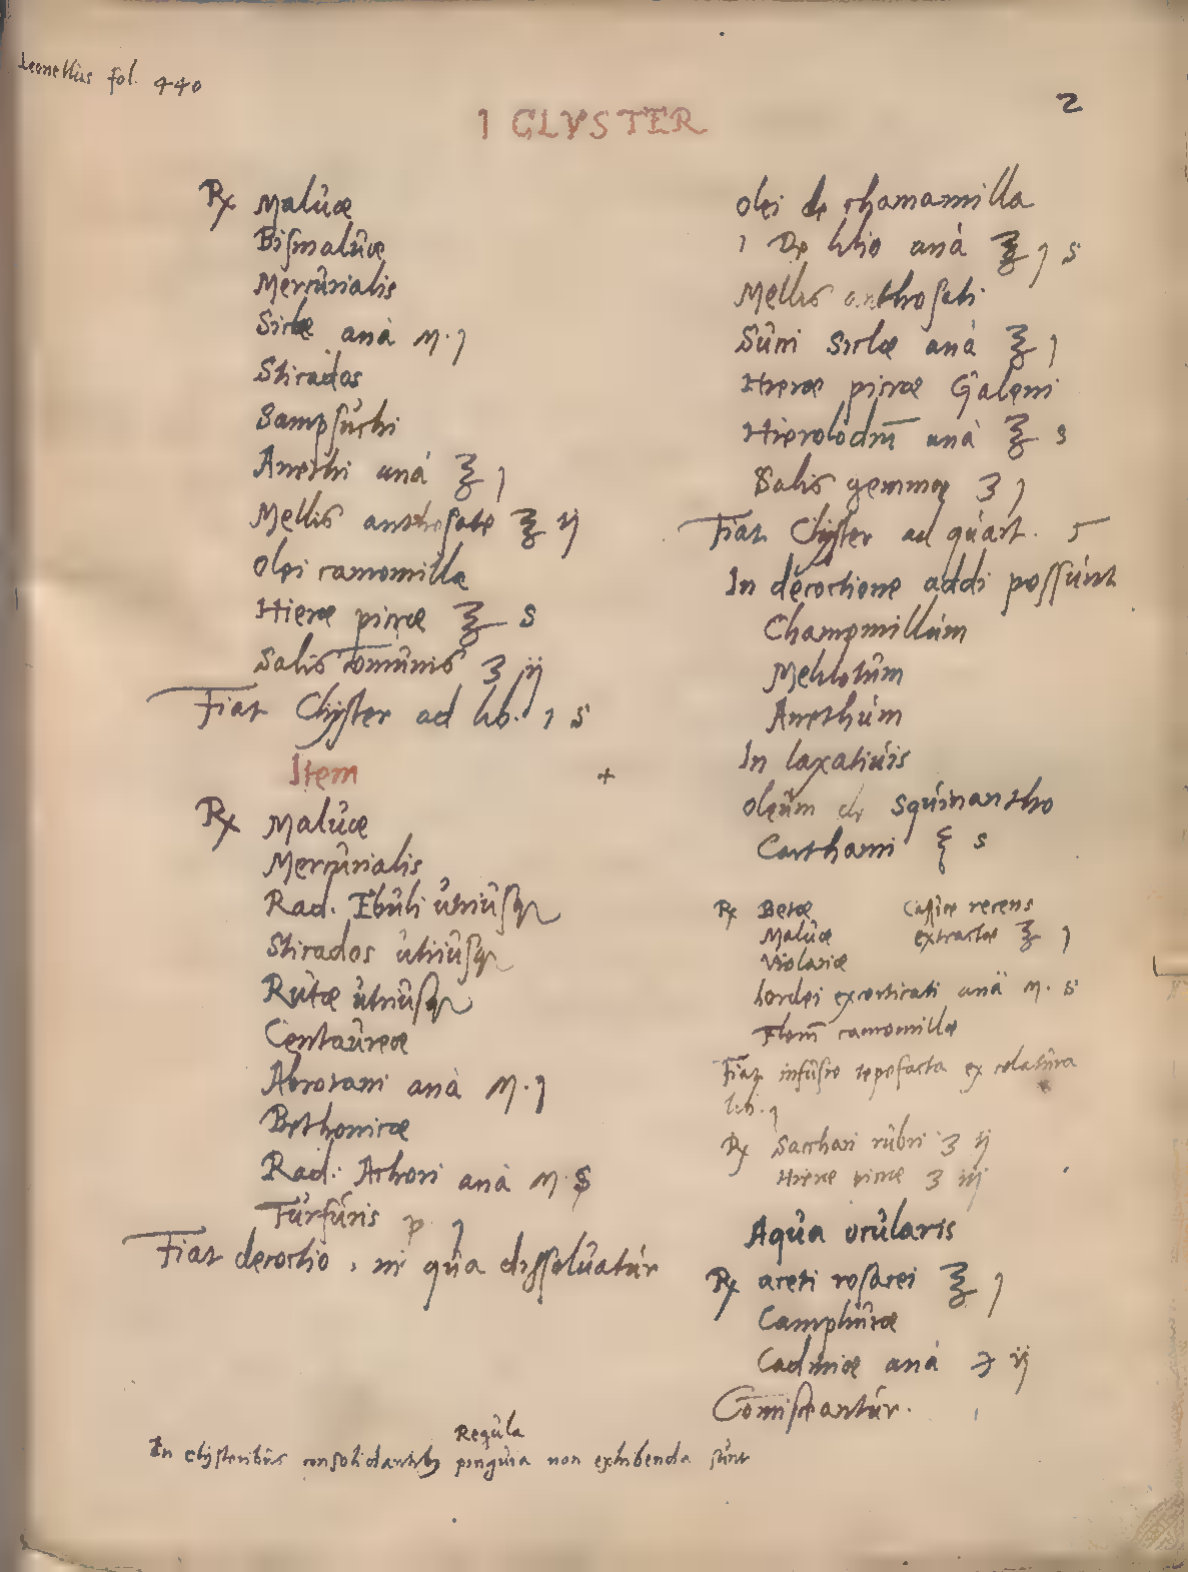 Leonellus fol. 440
2
1 CLYSTER
Rx Malûæ
Bismalûæ
Mercûrialis
Siclæ aná M. j
Sticados
Sampsûchi
Anethi aná ℥ j
Mellis anthosate ℥ ij
Olei camomillæ
Hieræ picræ ℥ s
Salis com̄ûnis ʒ ij
Fiat Clyster ad lib. 1 s
Item
Rx Malûæ
Mercûrialis
Rad. Ebûli ûtriûsq
Sticados ûtriûsq
Rûtæ ûtriûsq
Centaûreæ
Abrotani aná M. j
Bethonicæ
Rad. Achori aná M. s
Fûrfûris p. j
Fiat decoctio, in qûa dissolûatûr
Olei de chamamilla
1 De lilio aná ℥ j s
Mellis anthosati
Sûcci Siclæ aná ℥ j
Hieræ picræ Galeni
Hierolodm̄ aná ℥ s
Salis gemmę ʒ j
Fiat Clyster ad qûart. 5
In decoctione addi possûnt
Chamomillûm
Melilotûm
Anethûm
In laxatiûis
Oleûm de Sqûinantho
Carthami ℥ s
Rx Betæ Cassiæ recens
Malûæ extractæ ℥ j
Violariæ
hordei excorticati aná M. s
Flom̄ camomillæ
Fiat infûsio tepefacta ex colatûra
lib. j
Rx Sacchari rûbri ʒ ij
Hieræ picræ ʒ iij
Aqûa ocûlaris
Rx aceti rosacei ℥ j
Camphûræ
Cadmiæ aná ℈ ij
Com̄isceantûr.
Regûla
In clysteribûs consolidantibꝫ pingûia non exhibenda sûnt